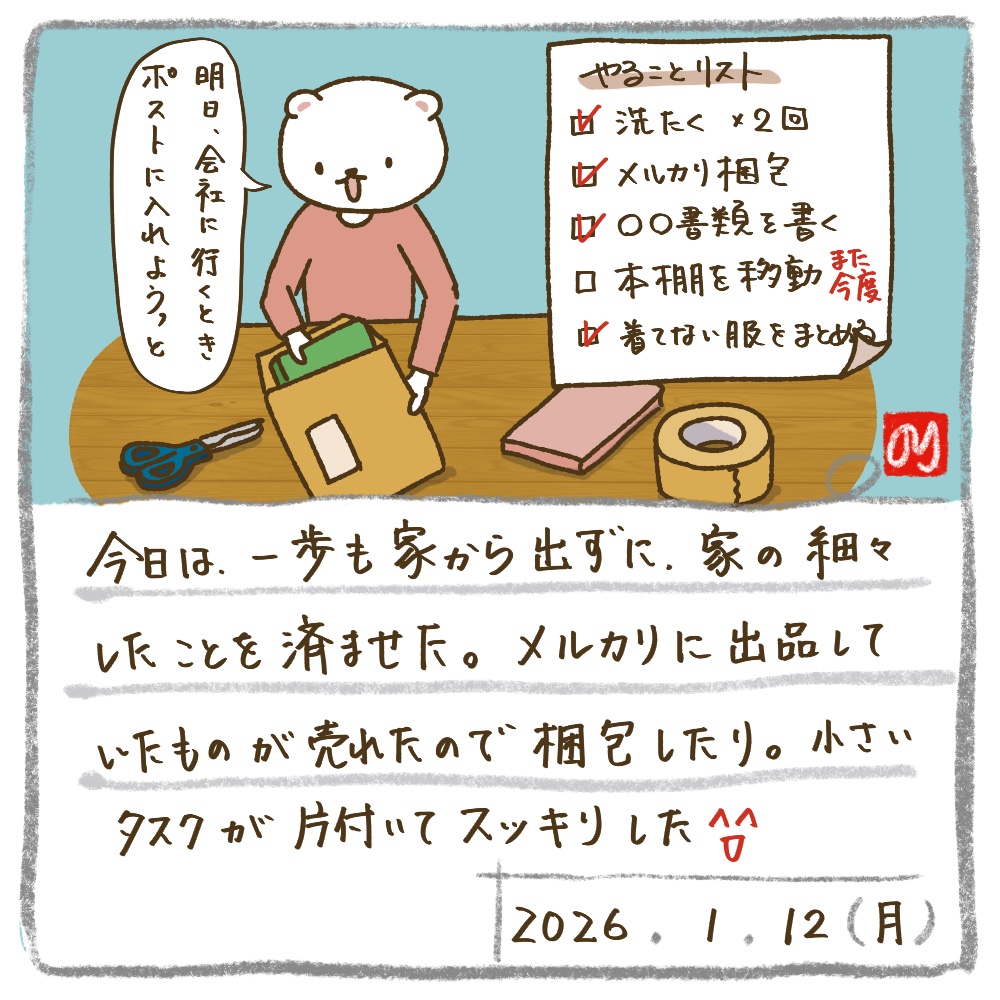 明日、会社に行くとき
ポストに入れようっと
やることリスト
洗たく ×2回
メルカリ梱包
〇〇書類を書く
本棚を移動 また
今度
着てない服をまとめる
今日は、一歩も家から出ずに、家の細々
したことを済ませた。メルカリに出品して
いたものが売れたので梱包したり。小さい
タスクが片付いてスッキリした
2026.1.12(月)